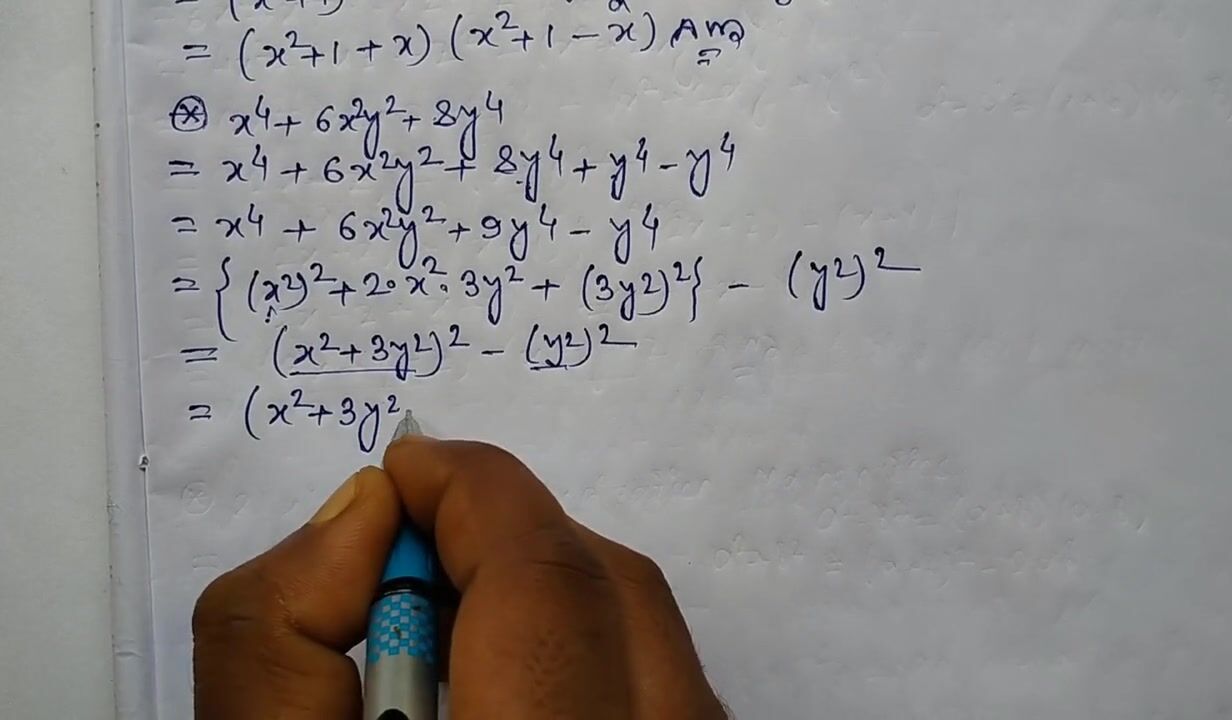 = (x²+1+x) (x²+1-x) Ans
⊛ x⁴+ 6x²y²+ 8y⁴
= x⁴ + 6x²y² + 8y⁴ + y⁴ - y⁴
= x⁴ + 6x²y² + 9y⁴ - y⁴
= {(x²)² + 2·x²·3y² + (3y²)²} - (y²)²
= (x²+3y²)² - (y²)²
= (x²+3y²